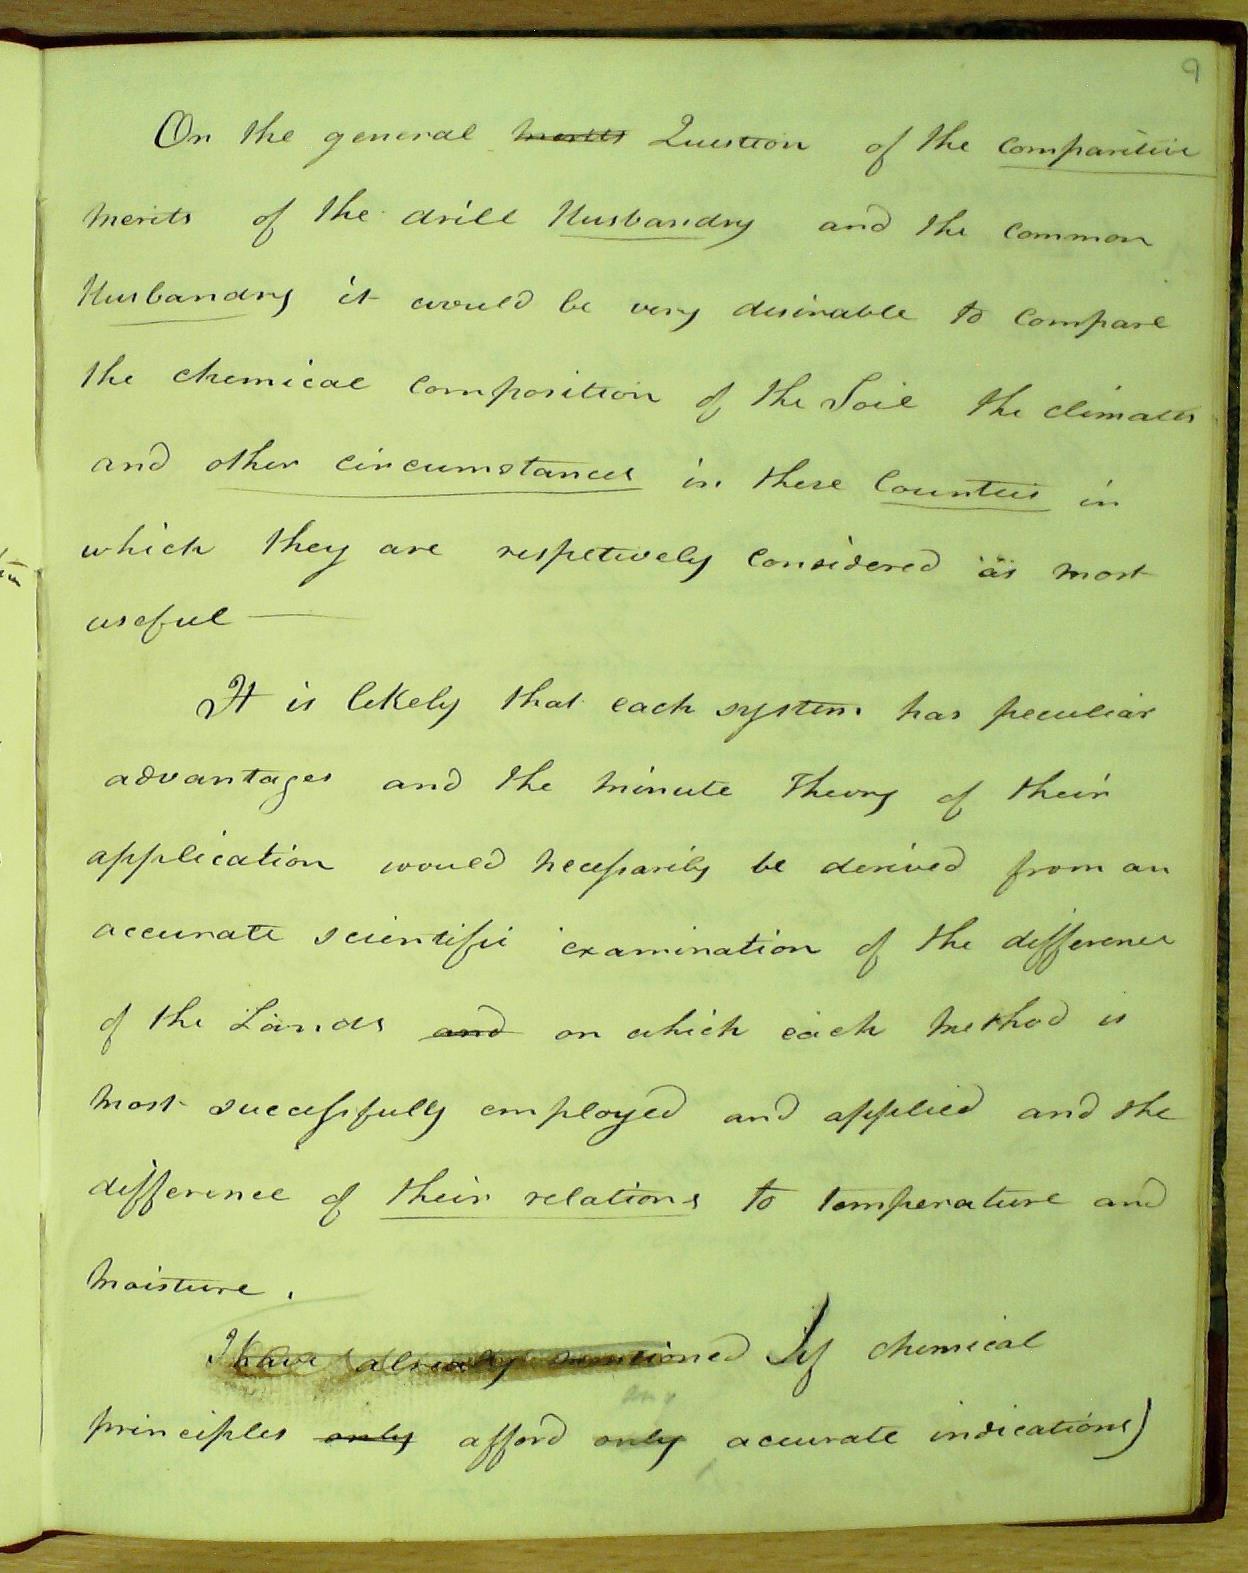 9
On the general merits Question of the comparitive
merits of the drill Husbandry and the common
Husbandry it would be very desirable to compare
the chemical composition of the Soil the climates
and other circumstances in these Counties in
which they are respetively considered as most
useful —
It is likely that each system has peculiar
advantages and the minute Theory of their
application would necessarily be derived from an
accurate scientific examination of the difference
of the Lands and on which each method is
most successfully employed and applied and the
difference of their relations to temperature and
moisture.
I have already mentioned If chemical
any
principles only afford only accurate indications)